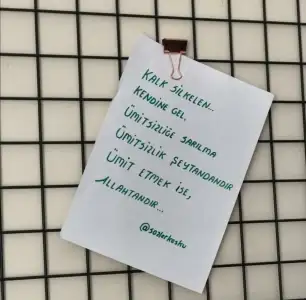 KALK SİLKELEN..
KENDİNE GEL.
ÜMİTSİZLİĞE SARILMA
ÜMİTSİZLİK ŞEYTANDANDIR
ÜMİT ETMEK İSE,
ALLAHTANDIR...
@sozlerkosku